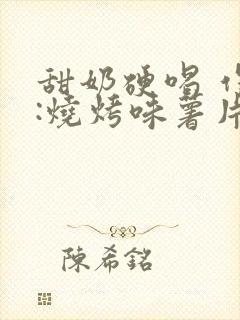 甜奶硬唱
:燒烤味薯片
陳希銘